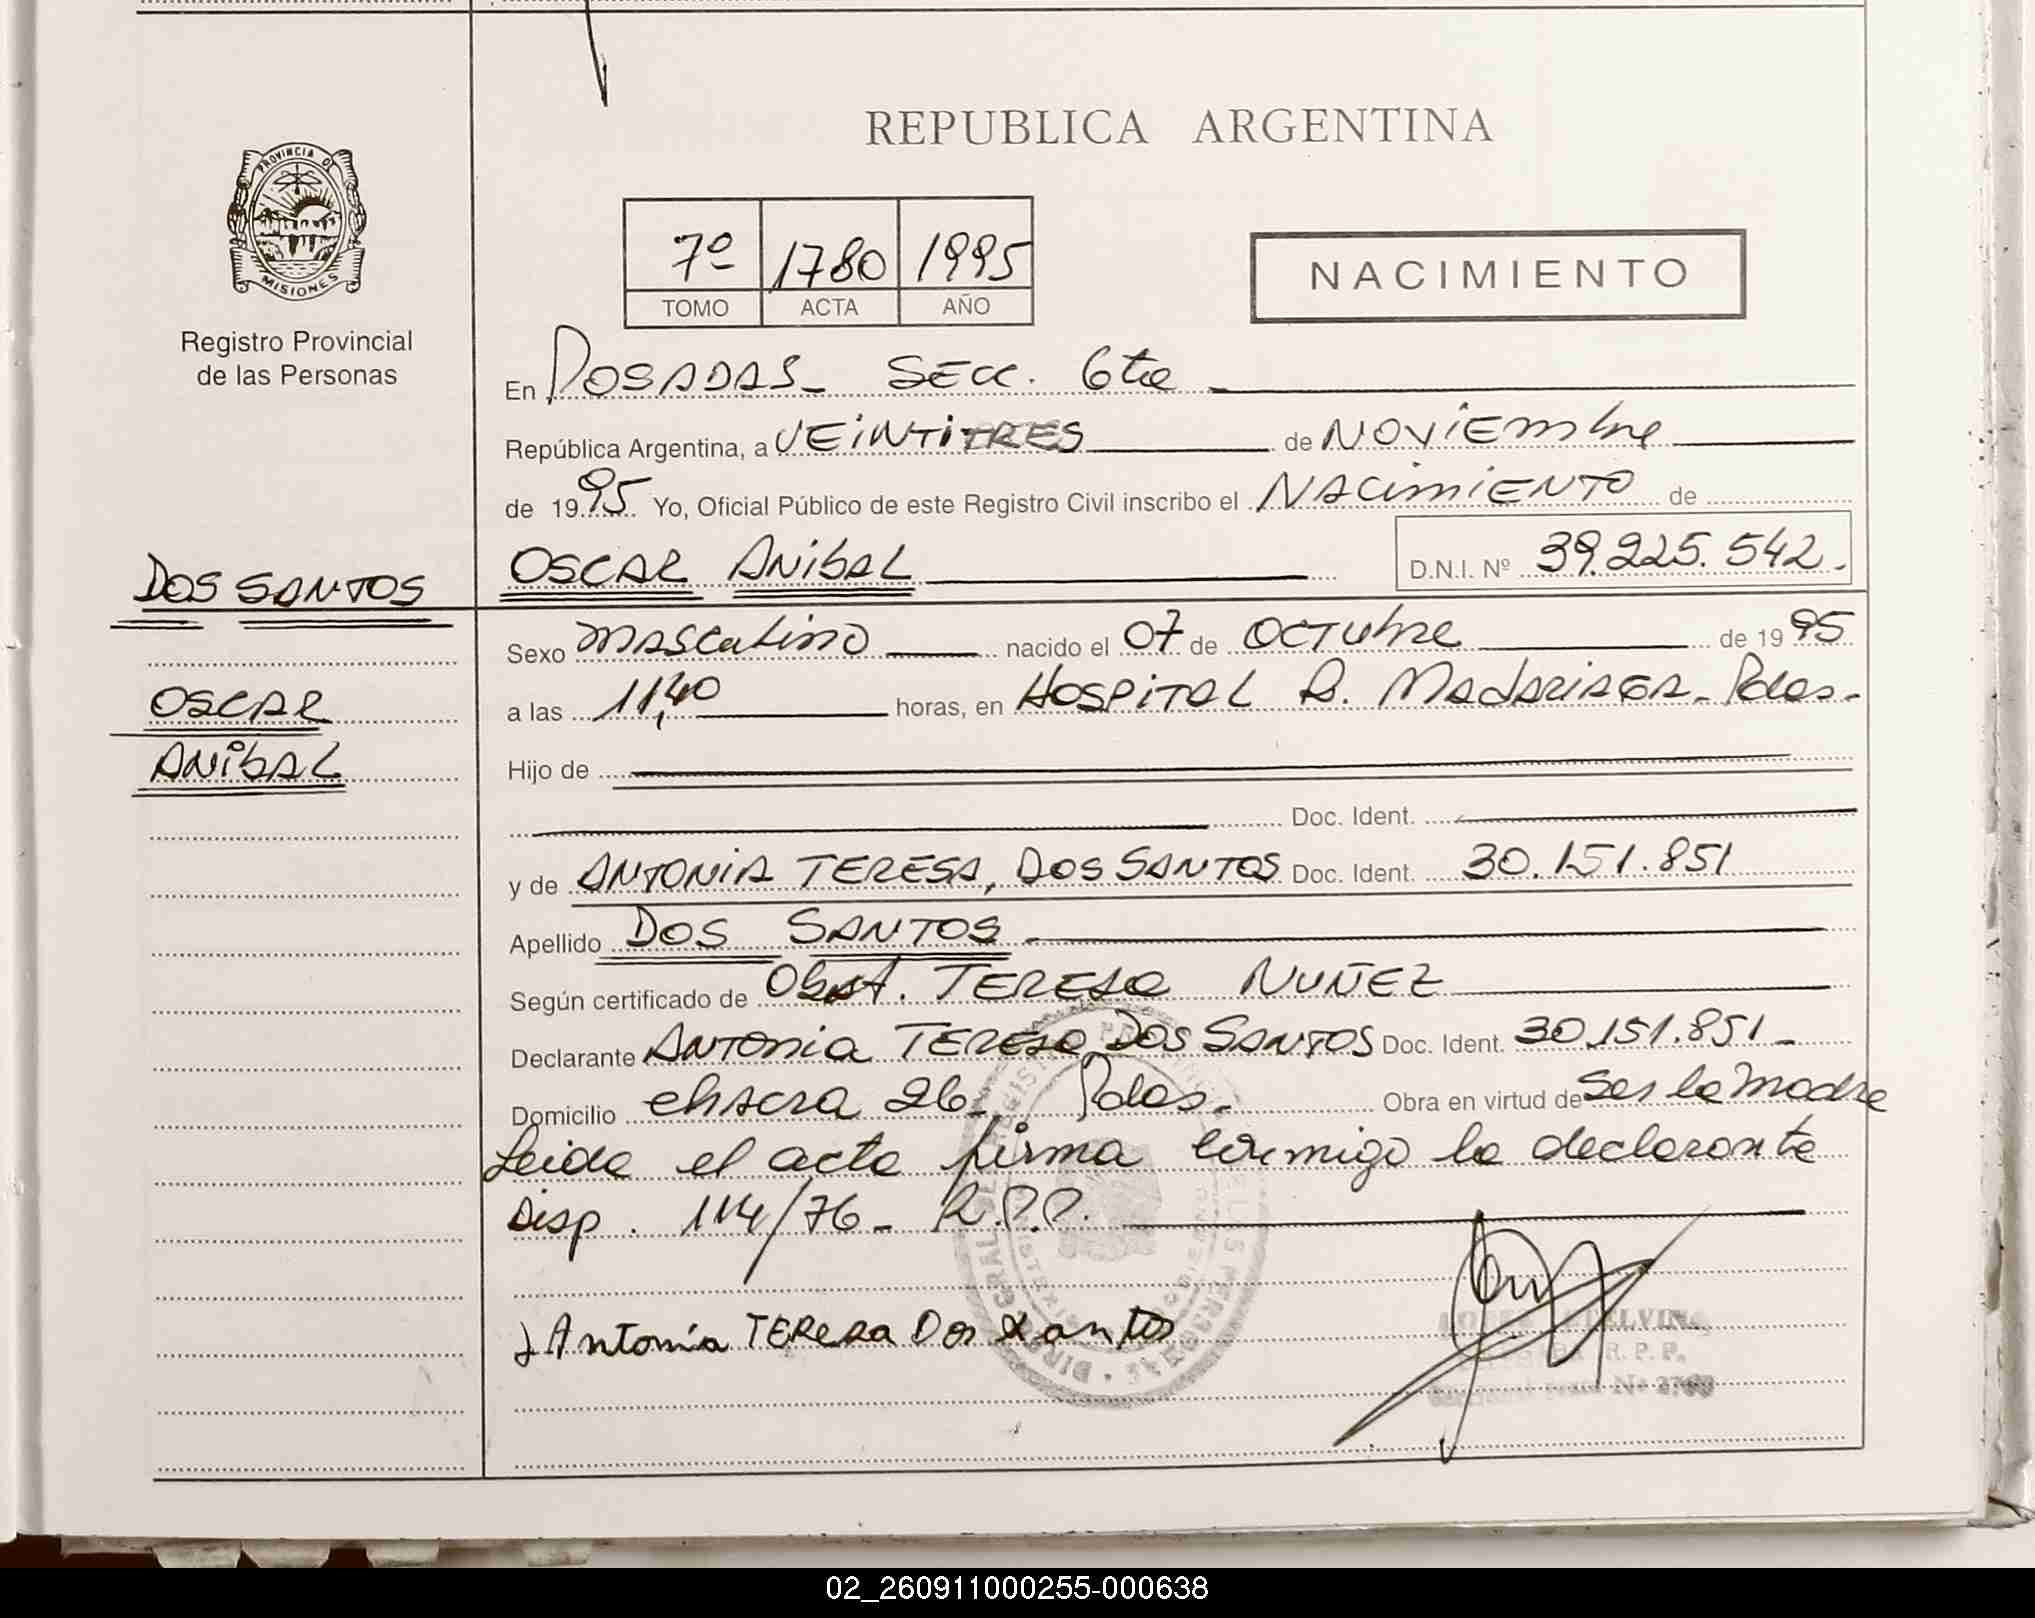 REPUBLICA ARGENTINA
PROVINCIA DE
MISIONES
Registro Provincial
de las Personas
7º 1780 1995
TOMO ACTA AÑO
NACIMIENTO
En POSADAS - SECC. 6ta
República Argentina, a VEINTITRES de NOVIEMbre
de 1995 Yo, Oficial Público de este Registro Civil inscribo el NACIMIENTO de
DOS SANTOS
OSCAR
ANIBAL
OSCAR ANIBAL D.N.I. Nº 39.225.542.
Sexo MASCulino nacido el 07 de OCTubre de 1995
a las 11,40 horas, en HOSPITAL R. MADARIAGA - Pdas.-
Hijo de
Doc. Ident.
y de ANTONIA TERESA, DOS SANTOS Doc. Ident. 30.151.851
Apellido DOS SANTOS
Según certificado de Obst. TERESA NUÑEZ
Declarante ANTONIA TERESA DOS SANTOS Doc. Ident. 30.151.851 -
Domicilio chacra 26 - Pdas. Obra en virtud de ser la madre
Leida el acta firma conmigo la declarante
Disp. 114/76 - R.P.P.
Antonia TEResa Dos Santos
R. P. P.
02_260911000255-000638